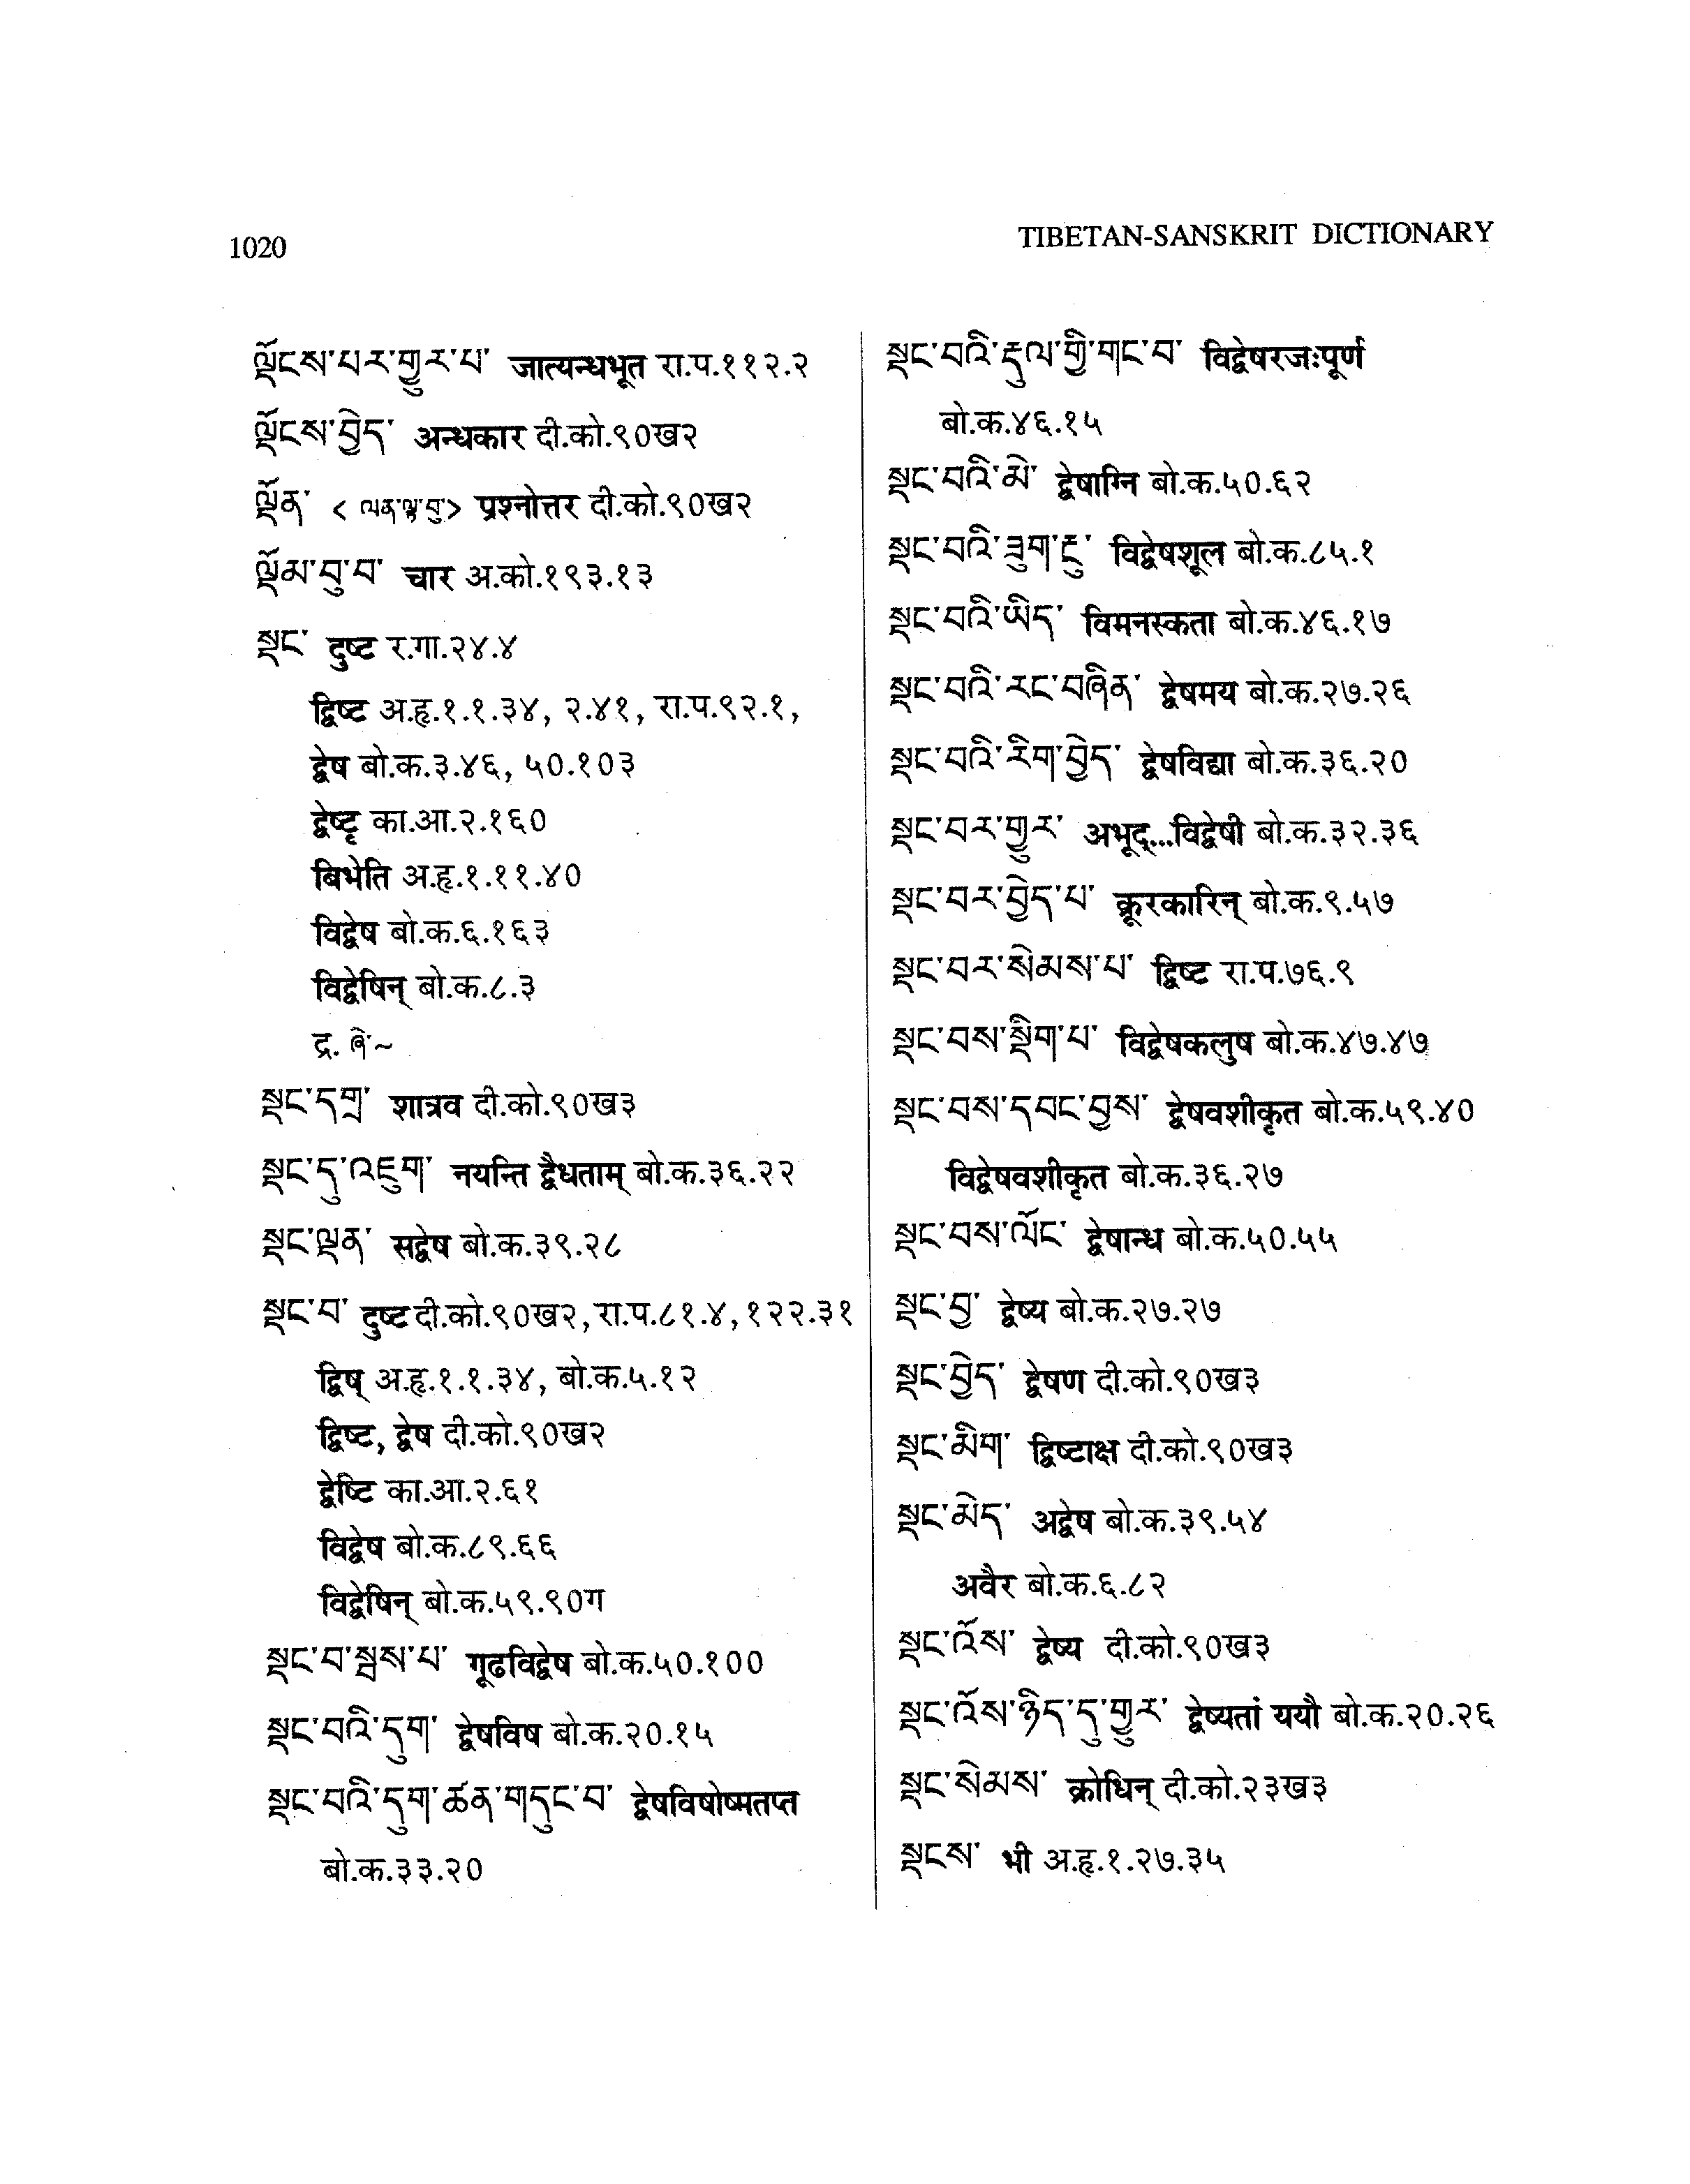 1020
TIBETAN-SANSKRIT DICTIONARY
ལྡོངས་པར་གྱུར་པ་ जात्यन्धभूत रा.प.११२.२
ལྡོངས་བྱེད་ अन्धकार दी.को.९०ख२
ལྡོན་ < ལན་ལྟ་བུ་> प्रश्नोत्तर दी.को.९०ख२
ལྡོམ་བུ་བ་ चार अ.को.१९३.१३
སྡང་ दुष्ट र.गा.२४.४
द्विष्ट अ.हृ.१.१.३४, २.४१, रा.प.९२.१,
द्वेष बो.क.३.४६, ५०.१०३
द्वेष्टृ का.आ.२.१६०
बिभेति अ.हृ.१.११.४०
विद्वेष बो.क.६.१६३
विद्वेषिन् बो.क.८.३
द्र. ཞེ་~
སྡང་དགྲ་ शात्रव दी.को.९०ख३
སྡང་དུ་འཇུག་ नयन्ति द्वैधताम् बो.क.३६.२२
སྡང་ལྡན་ सद्वेष बो.क.३९.२८
སྡང་བ་ दुष्ट दी.को.९०ख२, रा.प.८१.४, १२२.३१
द्विष् अ.हृ.१.१.३४, बो.क.५.१२
द्विष्ट, द्वेष दी.को.९०ख२
द्वेष्टि का.आ.२.६१
विद्वेष बो.क.८९.६६
विद्वेषिन् बो.क.५९.९०ग
སྡང་བ་སྦས་པ་ गूढविद्वेष बो.क.५०.१००
སྡང་བའི་དུག་ द्वेषविष बो.क.२०.१५
སྡང་བའི་དུག་ཚན་གདུང་བ་ द्वेषविषोष्मतप्त
बो.क.३३.२०
སྡང་བའི་རྡུལ་གྱི་གང་བ་ विद्वेषरजःपूर्ण
बो.क.४६.१५
སྡང་བའི་མེ་ द्वेषाग्नि बो.क.५०.६२
སྡང་བའི་ཟུག་རྔུ་ विद्वेषशूल बो.क.८५.१
སྡང་བའི་ཡིད་ विमनस्कता बो.क.४६.१७
སྡང་བའི་རང་བཞིན་ द्वेषमय बो.क.२७.२६
སྡང་བའི་རིག་བྱེད་ द्वेषविद्या बो.क.३६.२०
སྡང་བར་གྱུར་ अभूद्...विद्वेषी बो.क.३२.३६
སྡང་བར་བྱེད་པ་ क्रूरकारिन् बो.क.९.५७
སྡང་བར་སེམས་པ་ द्विष्ट रा.प.७६.९
སྡང་བས་སྡིག་པ་ विद्वेषकलुष बो.क.४७.४७
སྡང་བས་དབང་བྱས་ द्वेषवशीकृत बो.क.५९.४०
विद्वेषवशीकृत बो.क.३६.२७
སྡང་བས་ལོང་ द्वेषान्ध बो.क.५०.५५
སྡང་བྱ་ द्वेष्य बो.क.२७.२७
སྡང་བྱེད་ द्वेषण दी.को.९०ख३
སྡང་མིག་ द्विष्टाक्ष दी.को.९०ख३
སྡང་མེད་ अद्वेष बो.क.३९.५४
अवैर बो.क.६.८२
སྡང་འོས་ द्वेष्य दी.को.९०ख३
སྡང་འོས་ཉིད་དུ་གྱུར་ द्वेष्यतां ययौ बो.क.२०.२६
སྡང་སེམས་ क्रोधिन् दी.को.२३ख३
སྡངས་ भी अ.हृ.१.२७.३५